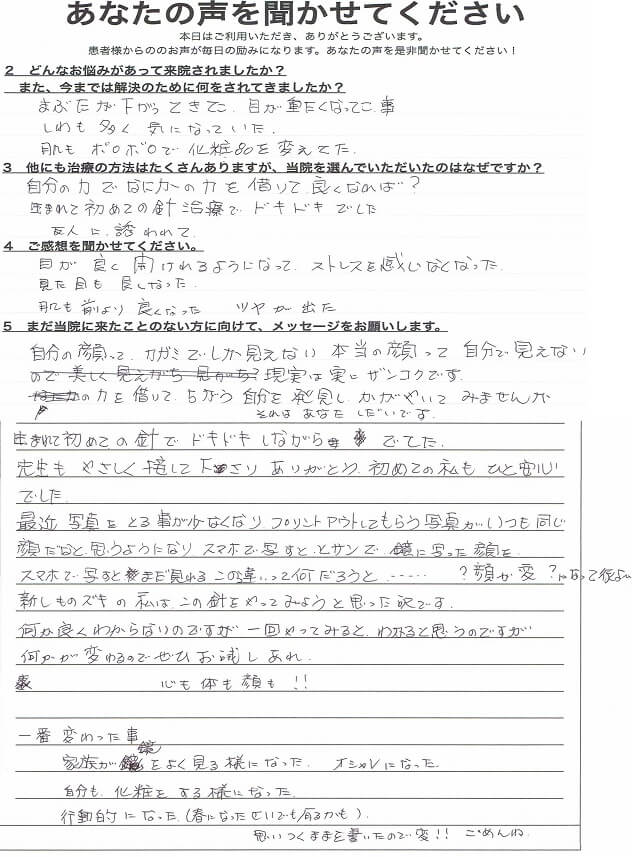 あなたの声を聞かせてください
本日はご利用いただき、ありがとうございます。
患者様からののお声が毎日の励みになります。あなたの声を是非聞かせてください！
2 どんなお悩みがあって来院されましたか？
また、今までは解決のために何をされてきましたか？
まぶたが下がってきてこ、目が重たくなってこ、事
しわも多く 気になっていた.
肌もボロボロで 化粧品を変えてた.
3 他にも治療の方法はたくさんありますが、当院を選んでいただいたのはなぜですか？
自分の力でなにかの力を借りて良くなれば?
生まれて初めての針治療で ドキドキでした
友人に 誘われて.
4 ご感想を聞かせてください。
目が 良く 開けれるようになって、ストレスを感じなくなった.
見た目も 良くなった.
肌も 前より 良くなった ツヤが出た
5 まだ当院に来たことのない方に向けて、メッセージをお願いします。
自分の顔って、カガミでしか見えない 本当の顔って 自分で見えない
ので 美しく見えがち 現実は実にザンコクです.
の力を借りて、ちがう 自分を発見し かがやいて みませんか
それは あなた しだいです.
生まれて初めての針で ドキドキしながら でてた.
先生も やさしく接して下さり ありがとう、初めての私も ひと安心
でした.
最近 写真を とる事が少なくなり プリントアウトしてもらう写真が いつも同じ
顔だなと思うようになり スマホで写すと とサンで 鏡に写った顔を
スマホで写すと まだ見れる この違いって何だろうと…… ?顔が変?になって
新しものズキの私は、この針をやってみようと思った訳です.
何が良くわからないのですが 一回やってみると、わかると思うのですが
何かが変わるのでぜひお試しあれ.
心も体も顔も !!
一番 変わった事
家族が 鏡をよく見る様になった. オシャレになった
自分も、化粧を する様になった.
行動的になった.(春になったせいでも有るかも).
思いつくままを書いたので変!! ごめんね.